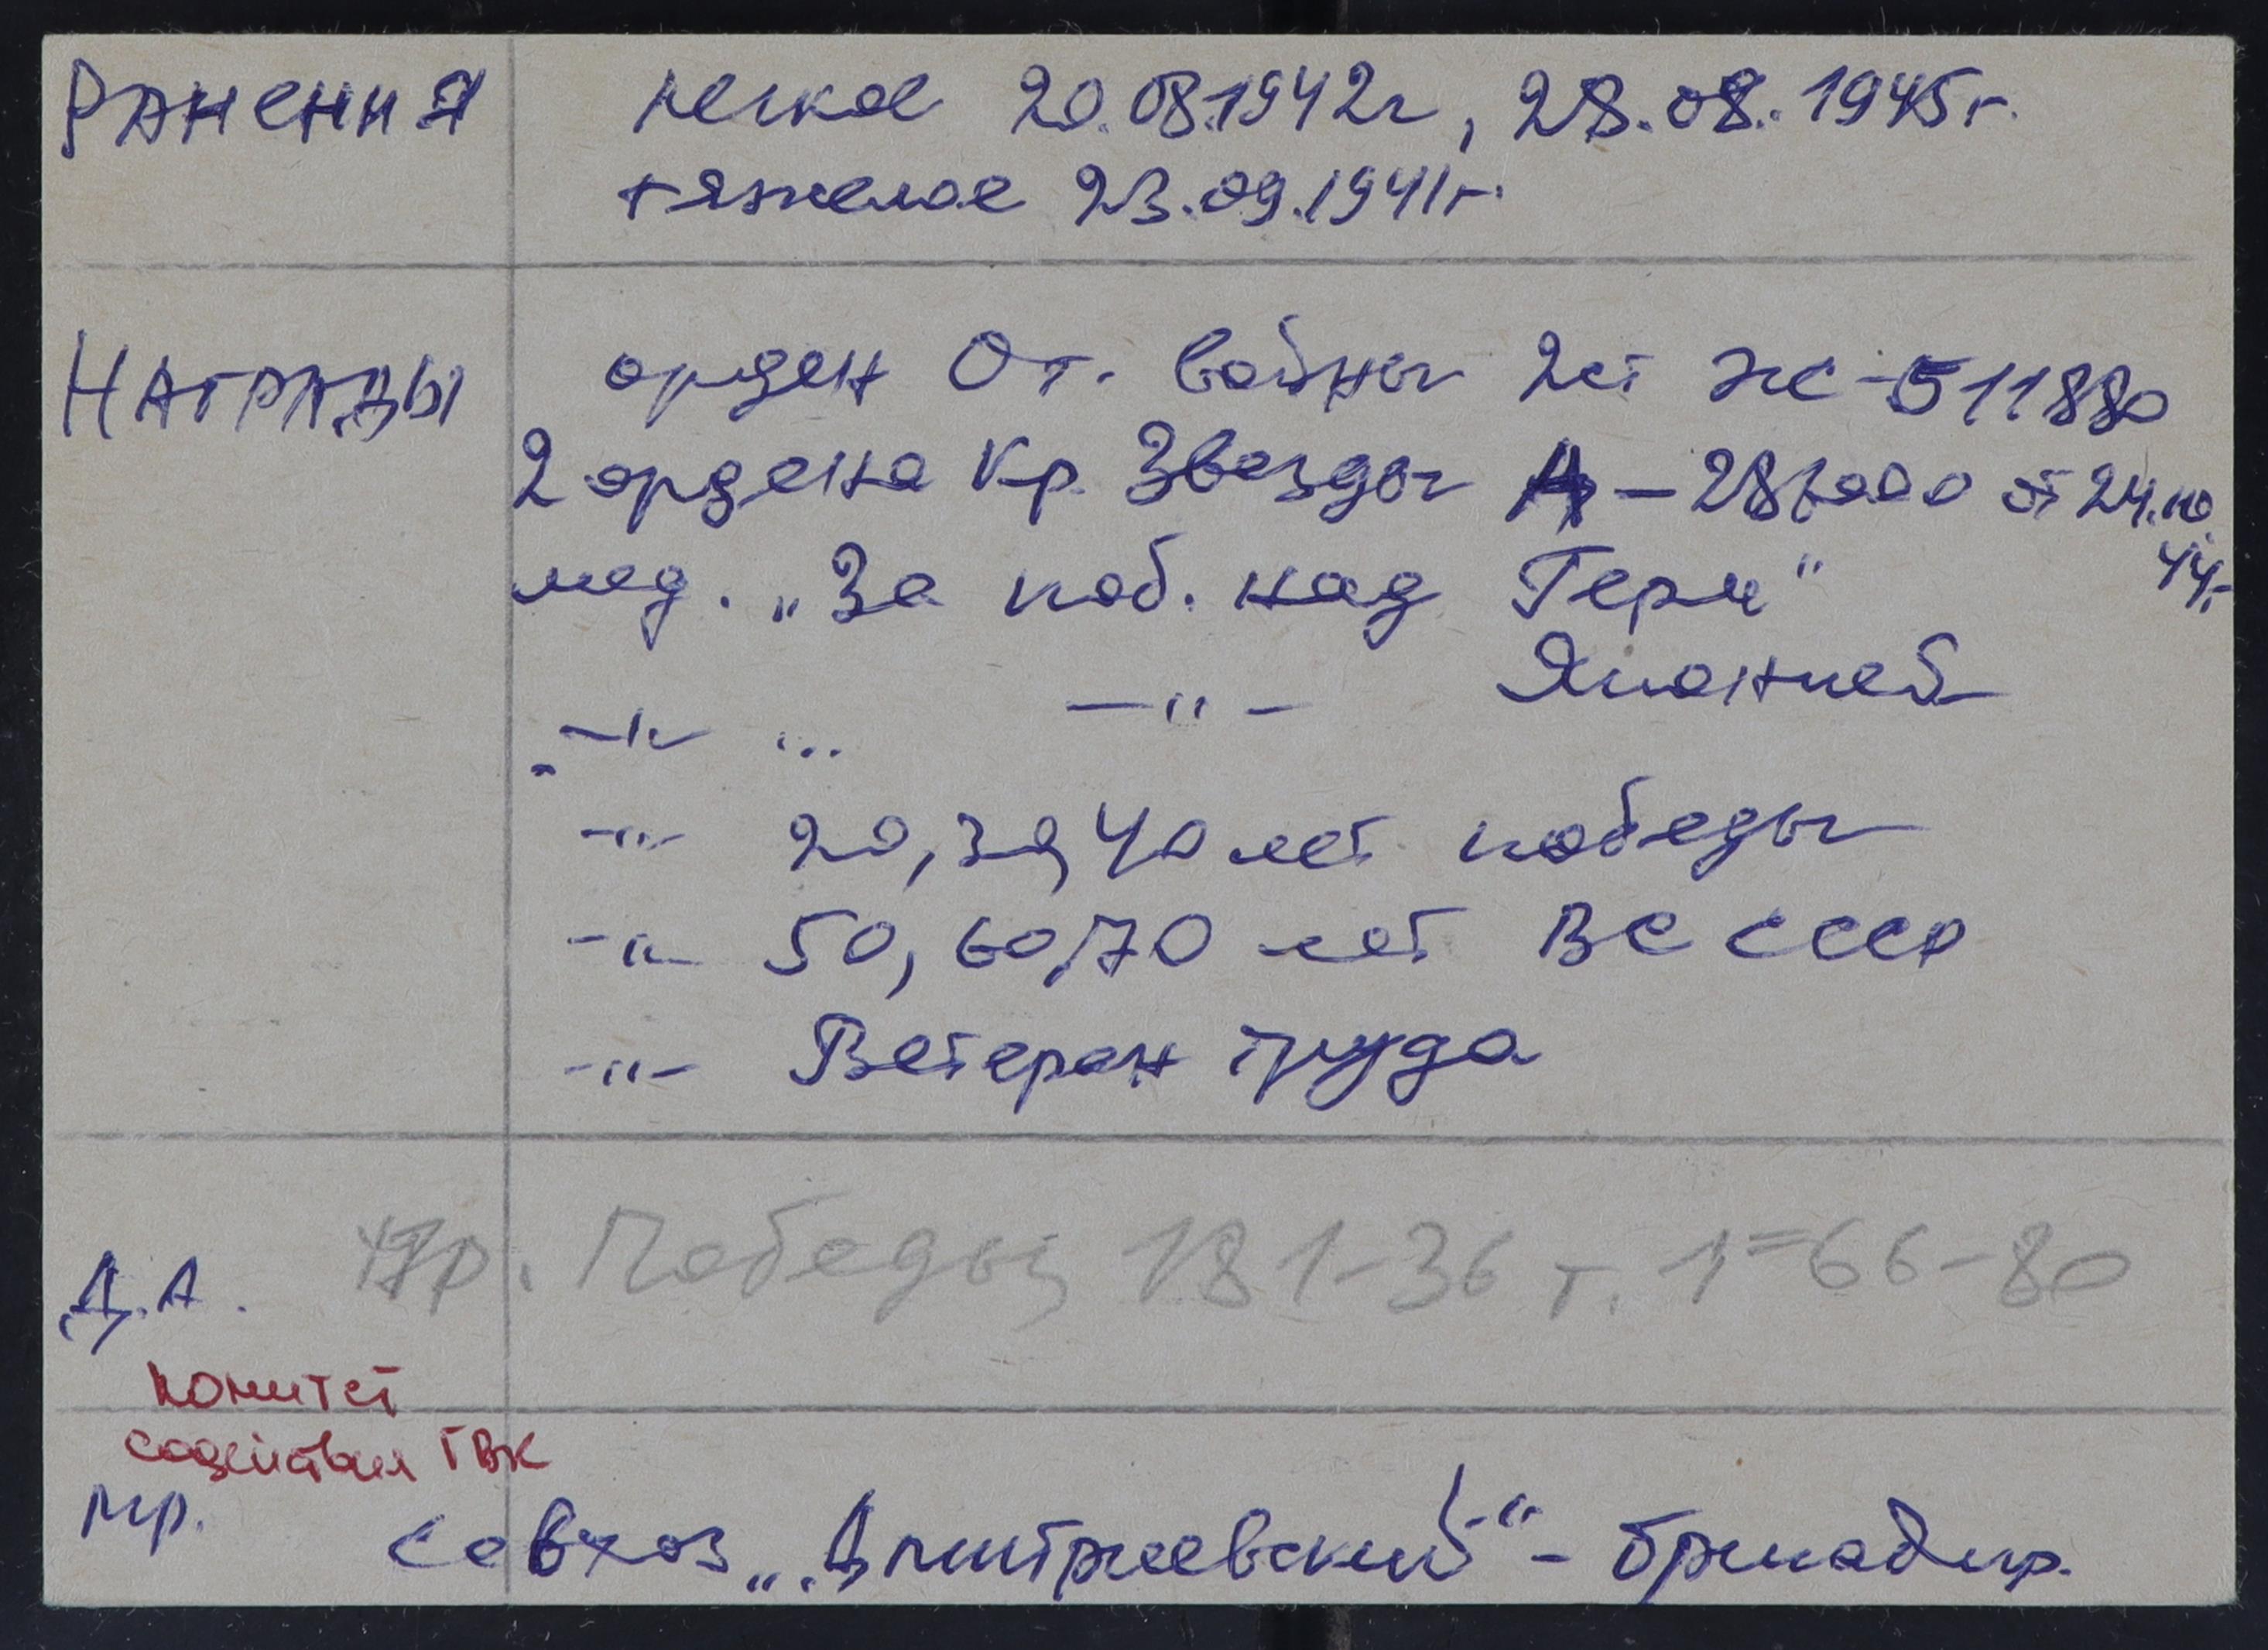 РАНЕНИЯ легкое 20.08.1942г, 28.08.1945г.
тяжелое 23.09.1941г.
НАГРАДЫ орден От. войны 2ст ЖС-511880
2 ордена Кр. Звезды А - 287000 от 24.10.
44г.
мед. „За поб. над Герм“
-"- „.. -"- Японией
-"- 20, 30, 40 лет победы
-"- 50, 60, 70 лет ВС СССР
-"- Ветеран труда
Д.А. пр. Победы, 181-36 т. 1=66-80
комитет
содействия ГВК
М.р. совхоз „Дмитриевский“ - бригадир.